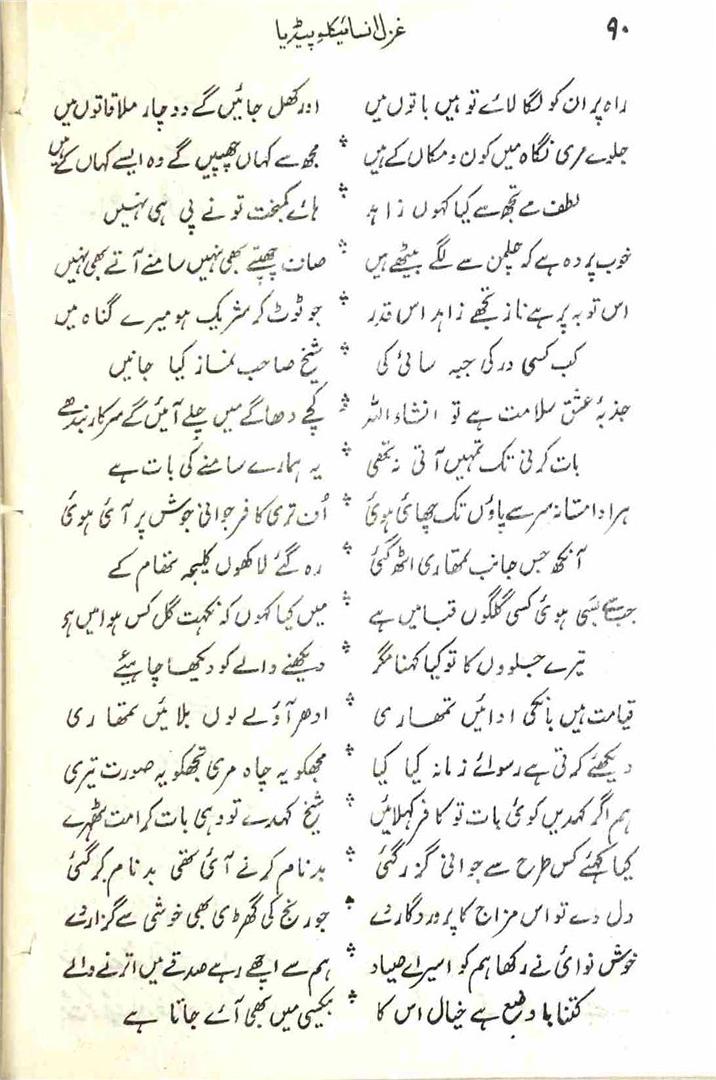 ۹۰ غزل انسائیکلوپیڈیا
راہ پر ان کو لگا لائے تو ہیں باتوں میں اور کھل جائیں گے دو چار ملاقاتوں میں
جلوے مری نگاہ میں کون و مکاں کے ہیں ؞ مجھ سے کہاں چھپیں گے وہ ایسے کہاں کے ہیں
لطف مے تجھ سے کیا کہوں زاہد ؞ ہائے کمبخت تو نے پی ہی نہیں
خوب پردہ ہے کہ چلمن سے لگے بیٹھے ہیں ؞ صاف چھپتے بھی نہیں سامنے آتے بھی نہیں
اس توبہ پر ہے ناز تجھے زاہد اس قدر ؞ جو ٹوٹ کر شریک ہو میرے گناہ میں
کب کسی در کی جبہ سائی کی ؞ شیخ صاحب نماز کیا جانیں
جذبۂ عشق سلامت ہے تو انشاء اللہ ؞ کچے دھاگے میں چلے آئیں گے سرکار بندھے
بات کرنی تک تمہیں آتی نہ تھی ؞ یہ ہمارے سامنے کی بات ہے
ہر ادا مستانہ سر سے پاؤں تک چھائی ہوئی ؞ اُف تری کافر جوانی جوش پر آئی ہوئی
آنکھ جس جانب تمھاری اٹھ گئی ؞ رہ گئے لاکھوں کلیجہ تھام کے
جب سے بسی ہوئی کسی گلگوں قبا میں ہے ؞ میں کیا کہوں کہ نکہت گل کس ہوا میں ہے
تیرے جلووں کا تو کیا کہنا مگر ؞ دیکھنے والے کو دیکھا چاہیئے
قیامت ہیں بانکی ادائیں تمھاری ؞ ادھر آؤ لے لوں بلائیں تمھاری
دیکھئے کرتی ہے رسوائے زمانہ کیا کیا ؞ مجھکو یہ چاہ مری تجھکو یہ صورت تیری
ہم اگر کہدیں کوئی بات تو کافر کہلائیں ؞ شیخ کہدے تو وہی بات کرامت ٹھہرے
کیا کہئے کس طرح سے جوانی گزر گئی ؞ بدنام کرنے آئی تھی بدنام کر گئی
دل دے تو اس مزاج کا پروردگار دے ؞ جو رنج کی گھڑی بھی خوشی سے گزار دے
خوش نوائی نے رکھا ہم کو اسیر اے صیاد ؞ ہم سے اچھے رہے صدقے میں اترنے والے
کتنا با وضع ہے خیال اس کا ؞ بیکسی میں بھی آئے جاتا ہے